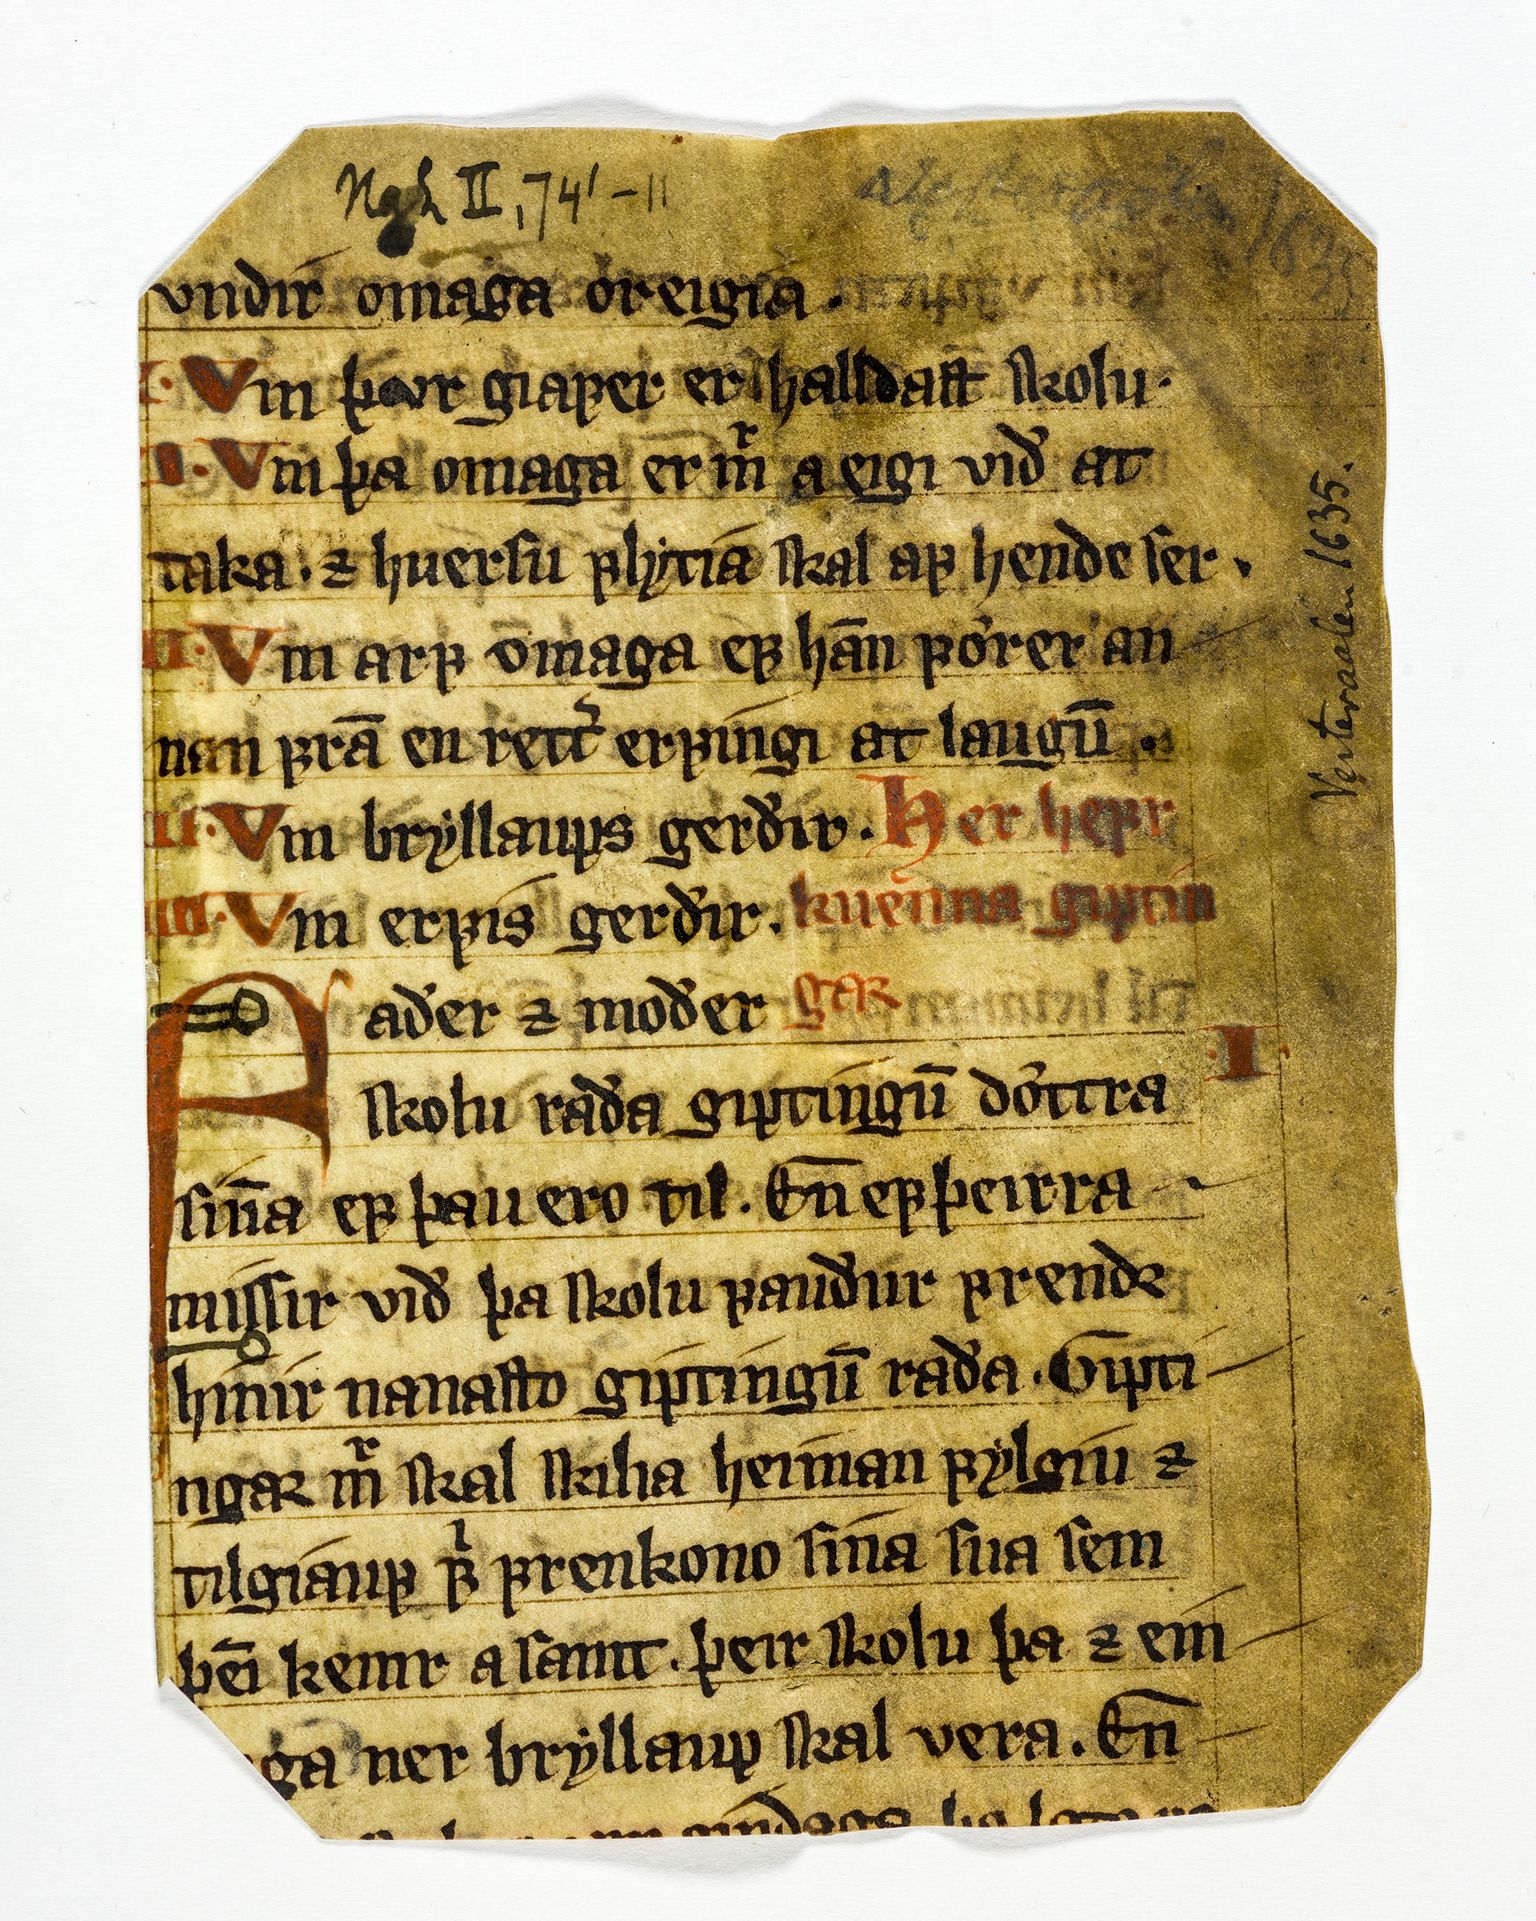 Ngl II, 74¹-11
Vesteraalen 1635
vndir omaga oreigia .
I· Vm þær giaꝼer er halldazt skolu·
II· Vm þa omaga er mͬ a eigi við at
taka· ⁊ huersu ꝼlytia skal aꝼ hende ser ·
II· Vm arꝼ ōmaga eꝼ hān ꝼǿrer an
nan ꝼrā en rettͬ erꝼingi at laugū .
III· Vm bryllaups gerðir . Her hefr
IIII· Vm erꝼis gerðir . kuēnna giptin
Faðer ⁊ moðer gar
I
skolu raða giptingū dǿttra
sin̄a eꝼ þau ero til . En̄ eꝼ þeirra
missir við þa skolu ꝼauður ꝼrendr
hinir nanasto giptingū raða . Gipti
ngar mͬ skal skilia heiman ꝼylgiu ⁊
tilgiauꝼ ꝼͥ ꝼrenkono sina sua sem
þeī kemr a samt . þeir skolu þa ⁊ ein
aga ner bryllaup skal vera . En̄
Vesteraalen 1635.